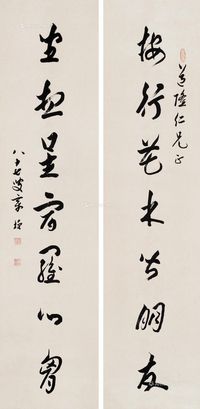 仁兄正
按行花木皆朋友
坐想星宿羅心胸
八十七叟